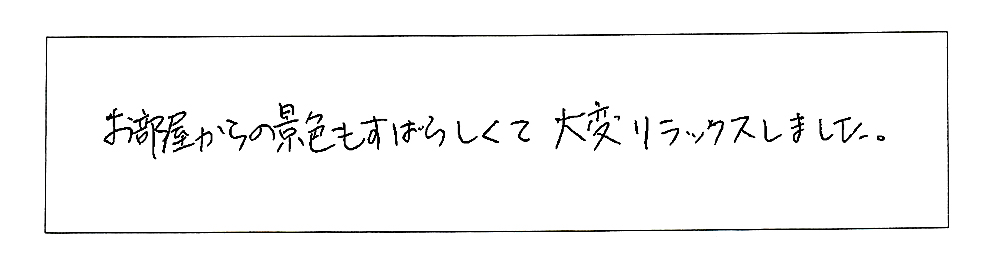 お部屋からの景色もすばらしくて 大変リラックスしました。